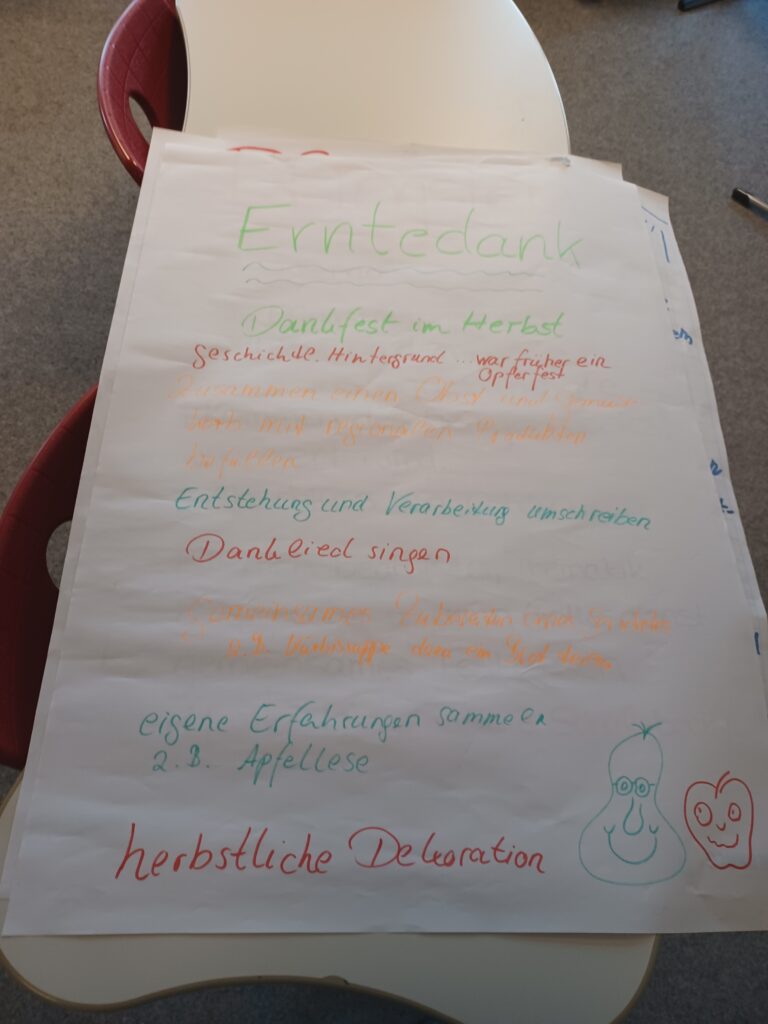 Erntedank
Dankfest im Herbst
geschichtl. Hintergrund ... war früher ein
Opferfest
Zusammen einen Obst und Gemüse
korb mit regionalen Produkten
befüllen
Entstehung und Verarbeitung umschreiben
Danklied singen
Gemeinsames Zubereiten eines
z.B. Kürbissuppe dazu ein Brot
eigene Erfahrungen sammeln
z.B. Apfellese
herbstliche Dekoration